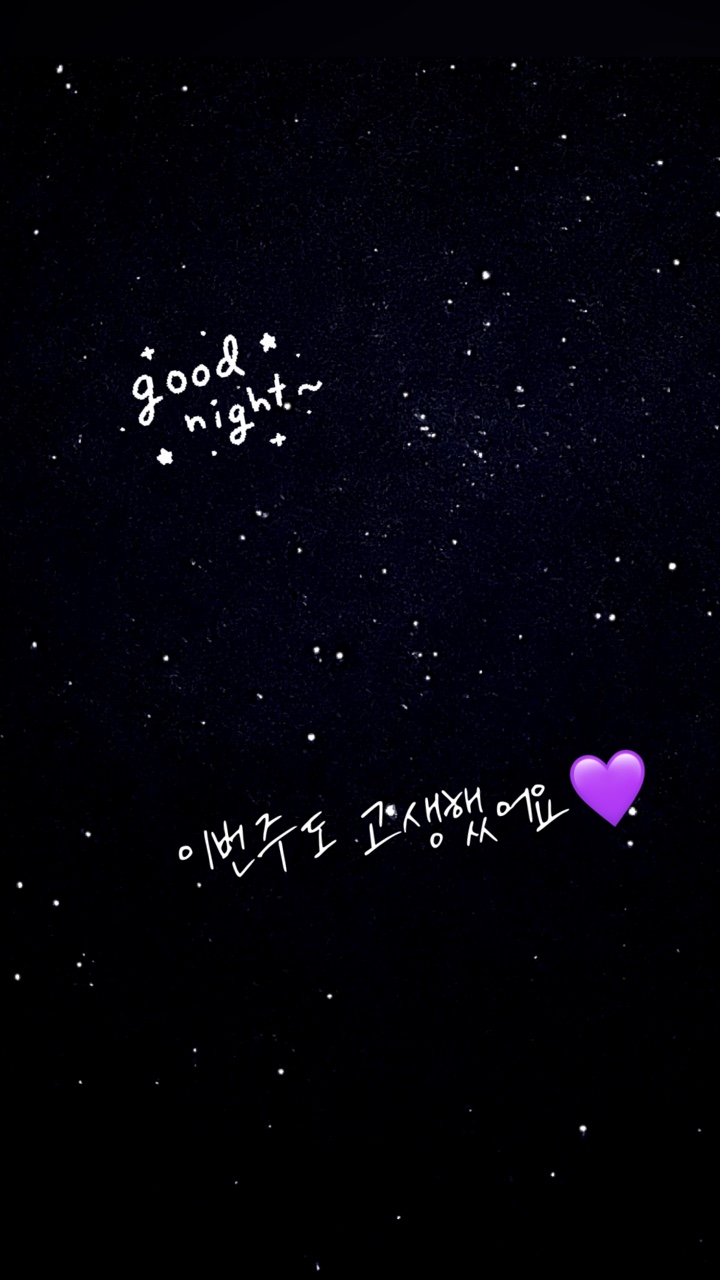 good
night~
이번주도 고생했어요💜